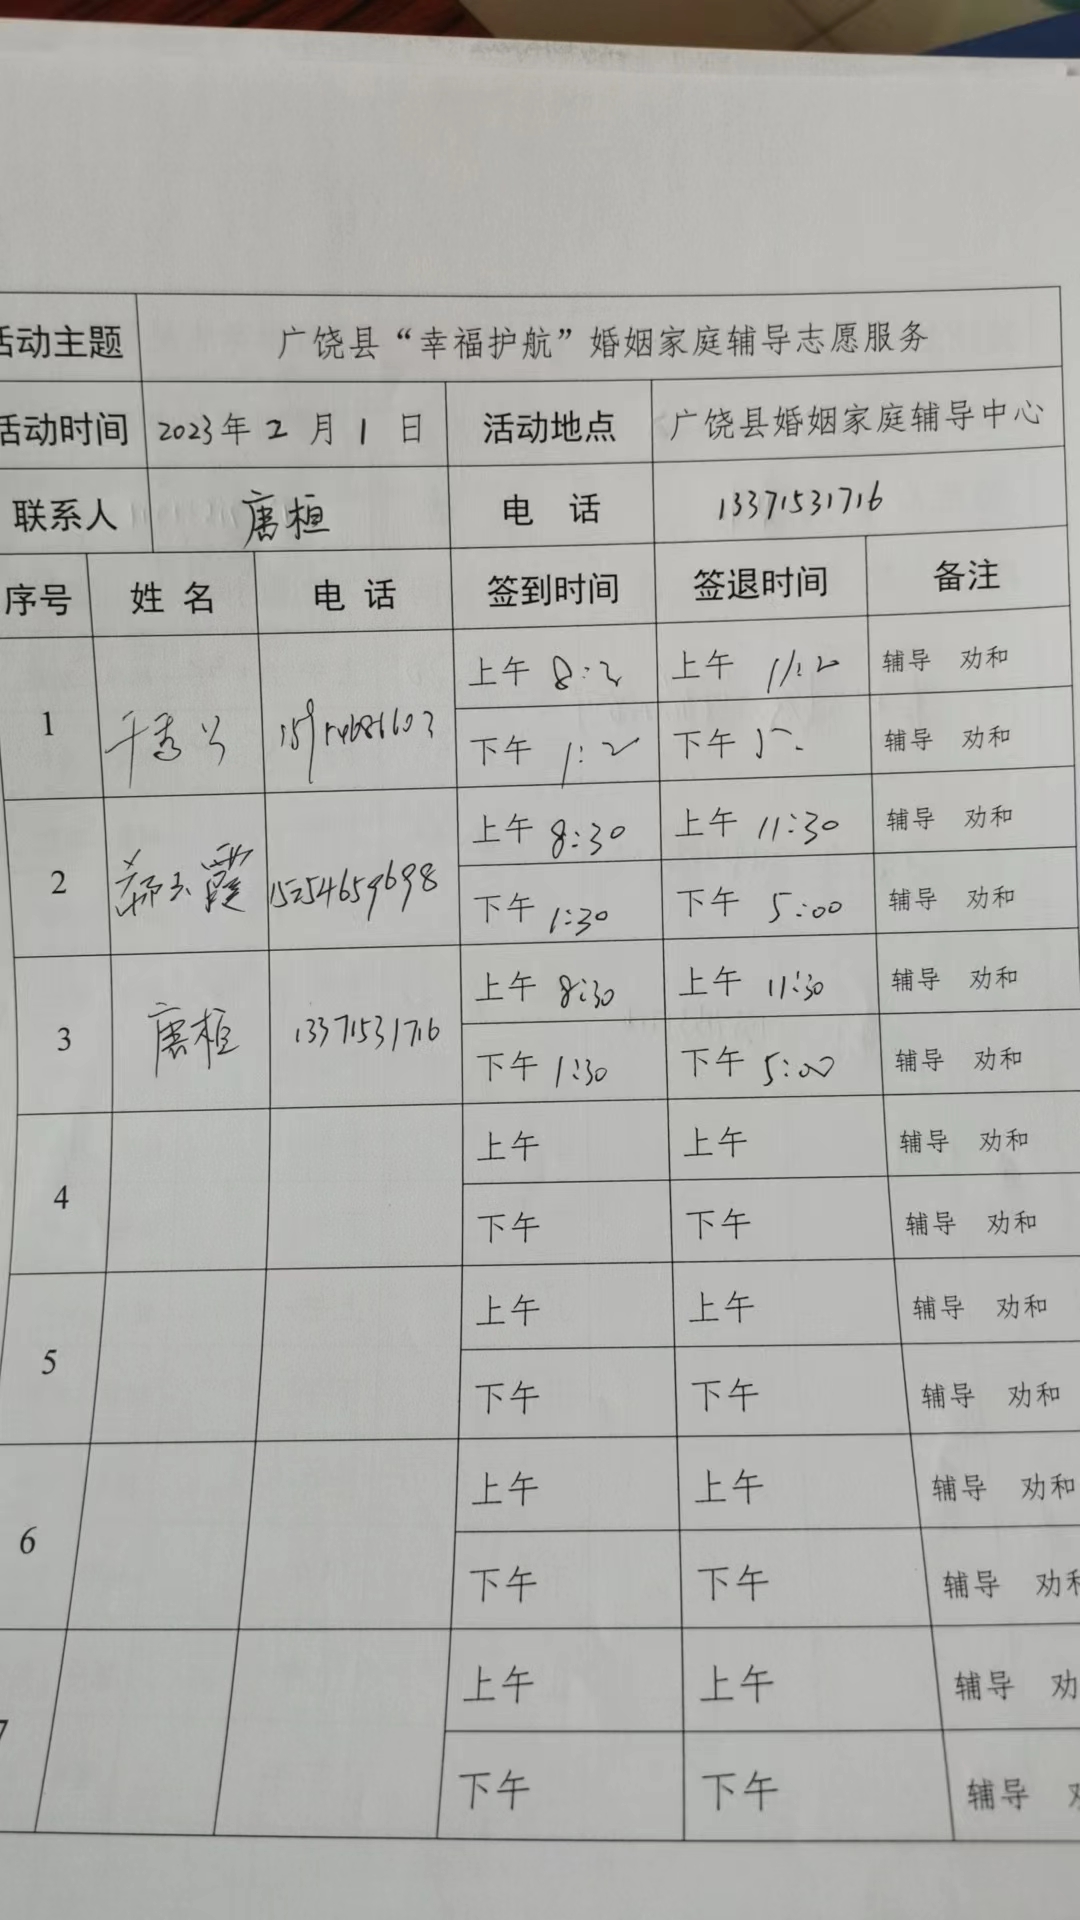 活动主题 广饶县“幸福护航”婚姻家庭辅导志愿服务
活动时间 2023年2月1日 活动地点 广饶县婚姻家庭辅导中心
联系人 唐桓 电 话 13371531716
序号 姓 名 电 话 签到时间 签退时间 备注
1 上午 8:3 上午 11:2 辅导 劝和
下午 1:2 下午 辅导 劝和
2 霞 15254659698 上午 8:30 上午 11:30 辅导 劝和
下午 1:30 下午 5:00 辅导 劝和
3 唐桓 13371531716 上午 8:30 上午 11:30 辅导 劝和
下午 1:30 下午 5:00 辅导 劝和
4 上午 上午 辅导 劝和
下午 下午 辅导 劝和
5 上午 上午 辅导 劝和
下午 下午 辅导 劝和
6 上午 上午 辅导 劝和
下午 下午 辅导 劝和
7 上午 上午 辅导 劝
下午 下午 辅导